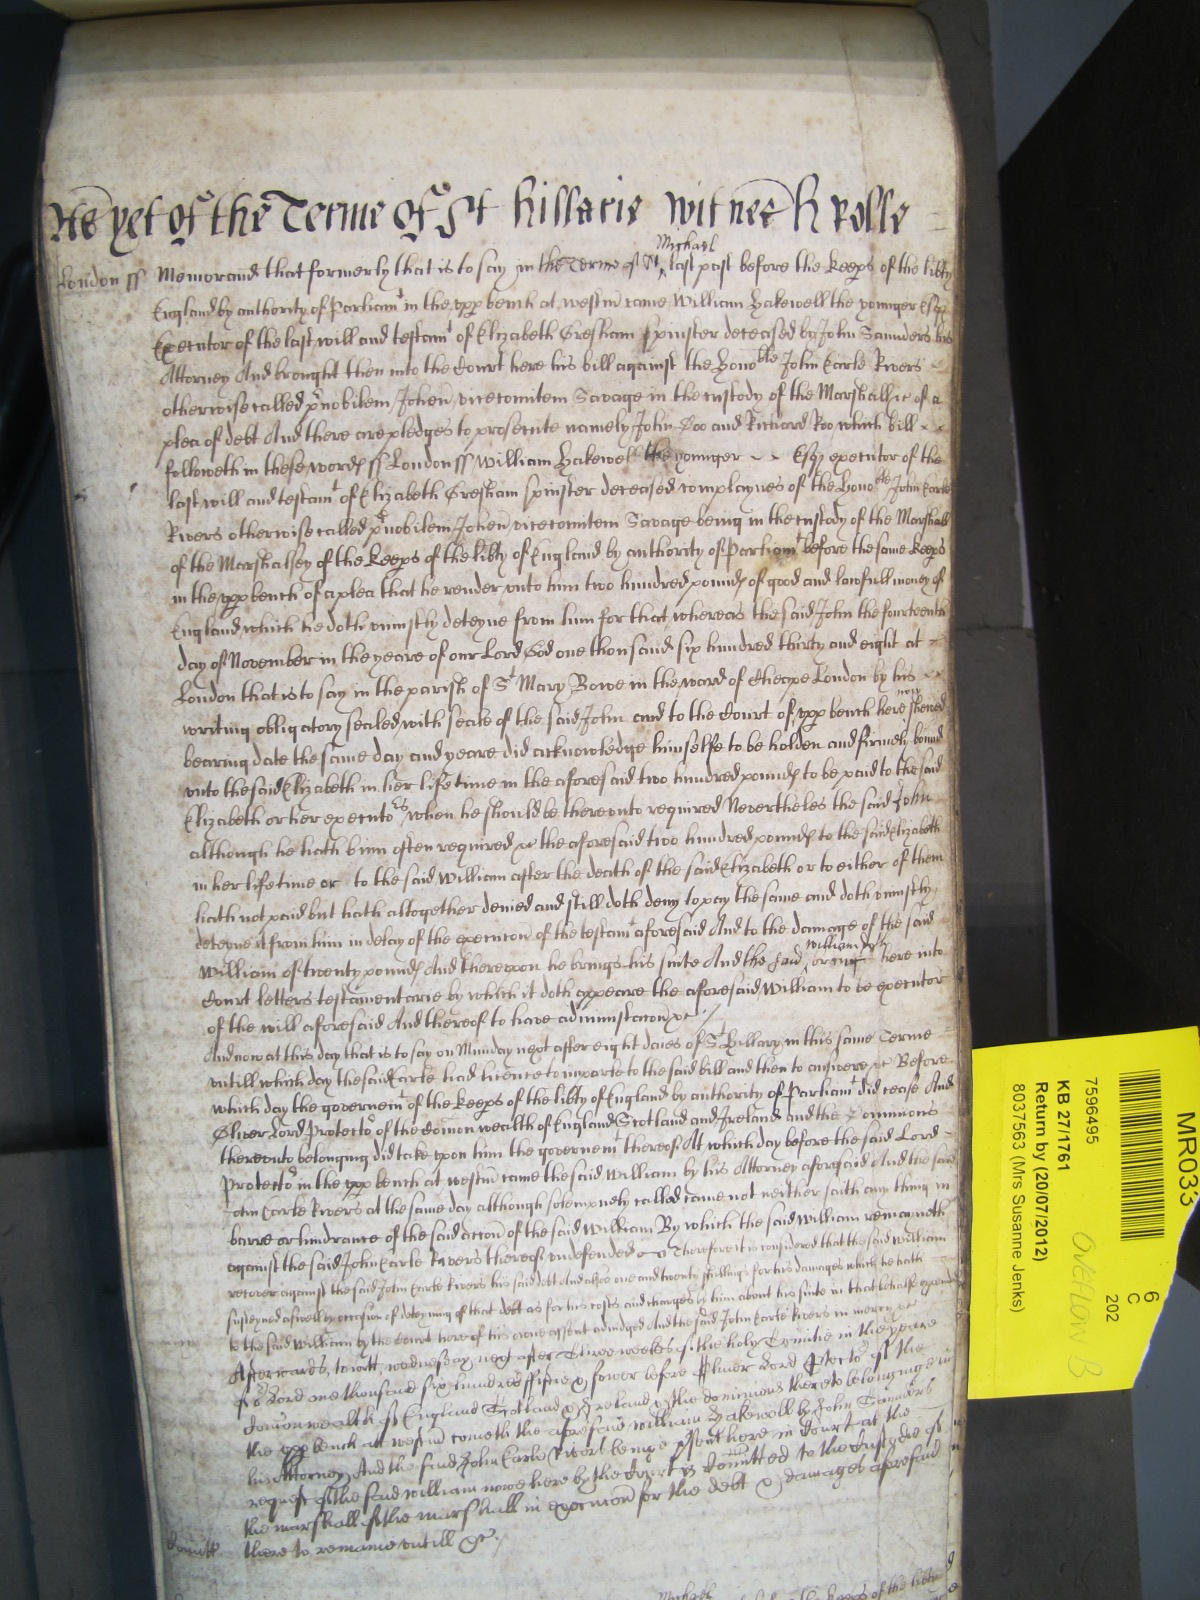 As yet of the Terme of St Hillarie Witnes H Rolle
London ss Memorand that formerly that is to say in the Terme of St Michael last past before the Keeps of the libty
England by authority of Parliamt in the upp bench at westm came William Hakewell the younger Esqr
Executor of the last will and testamt of Elizabeth Gresham spinster deceased by John Saunders his
Attorney And brought then into the Court here his bill against the Honoble John Earle Rivers
otherwise called prnobilem Johem vicecomitem Savage in the custody of the Marshallsie of a
plea of debt And there are pledges to prosecute namely John Doo and Richard Roo which bill
followeth in these words ss London ss William Hakewel the younger Esqr executor of the
last will and testamt of Elizabeth Gresham spinster deceased complaynes of the Honoble John Earle
Rivers otherwise called prnobilem Johem vicecomitem Savage being in the custody of the Marshall
of the Marshalsey of the Keeps of the libty of England by authority of Parliamt before the same Keeps
in the upp bench of a plea that he render unto him two hundred pounds of good and lawfull money of
England which he doth uniustly deteyne from him for that whereas the said John the fourteenth
day of November in the yeare of our Lord God one thousand six hundred thirty and eight at
London that is to say in the parish of St Mary Bowe in the ward of Cheape London by his
writing obligatory sealed with seale of the said John and to the Court of upp bench here now shewed
bearing date the same day and yeare did acknowledge himselfe to be holden and firmely bound
unto the said Elizabeth in her life time in the aforesaid two hundred pounds to be paid to the said
Elizabeth or her executors when he should be thereunto required Nevertheles the said John
although he hath binn often required &c the aforesaid two hundred pounds to the said Elizabeth
in her life time or to the said William after the death of the said Elizabeth or to either of them
hath not paid but hath altogether denied and still doth deny to pay the same and doth uniustly
deteyne it from him in delay of the execucon of the testamt aforesaid And to the damage of the said
William of twenty pounds And thereupon he brings his suite And the said William here into
Court letters testamentarie by which it doth appeare the aforesaid William to be executor
of the will aforesaid And thereof to have administracon &c
And now at this day that is to say on Munday next after eight daies of St Hillary in this same Terme
untill which day the said Earle had licence to imparle to the said bill and then to answere &c Before
which day the governemt of the Keeps of the libty of England by authority of Parliamt did cease And
Oliver Lord Protector of the Comon wealth of England Scotland and Ireland and the Dominions
thereunto belonging did take upon him the governemt thereof At which day before the said Lord
Protector in the upp bench at westm came the said William by his Attorney aforesaid And the said
John Earle Rivers at the same day although solempnely called came not neither saith any thing in
barre or hindrance of the said accon of the said William By which the said William remayneth
against the said John Earle Rivers thereof undefended Therefore it is considered that the said William
recover against the said John Earle Rivers his said debt And alsoe one and twenty shillings for his damages which he hath
susteyned aswell by occasion of deteyning of that debt as for his costs and charges by him about his suite in that behalfe expended
to the said William by the Court here of his owne assent adiudged And the said John Earle Rivers in mercy &c
Afterwards, to witt, wednesday next after Three weekes of the holy Trinitie in the yeare
of or Lord one thousand six hundred fiftie & fower before Oliver Lord Protector of the
Comonwealth of England Scotland & Ireland & the dominions thereto belonginge in
the upp bench at westm cometh the aforesaid William Hakewell by John Saunders
his Attorney, And the said John Earle Rivers beinge psent here in Court at the
request of the said William nowe here by the Court is Comitted to the Custodie of
the marshall of the marshall in execucon for the debt & damages aforesaid
Comitt there to remaine untill &c.
Michael
MR033
7596495
KB 27/1761
Return by (20/07/2012)
8037563 (Mrs Susanne Jenks)
6
C
202
OVERFLOW B